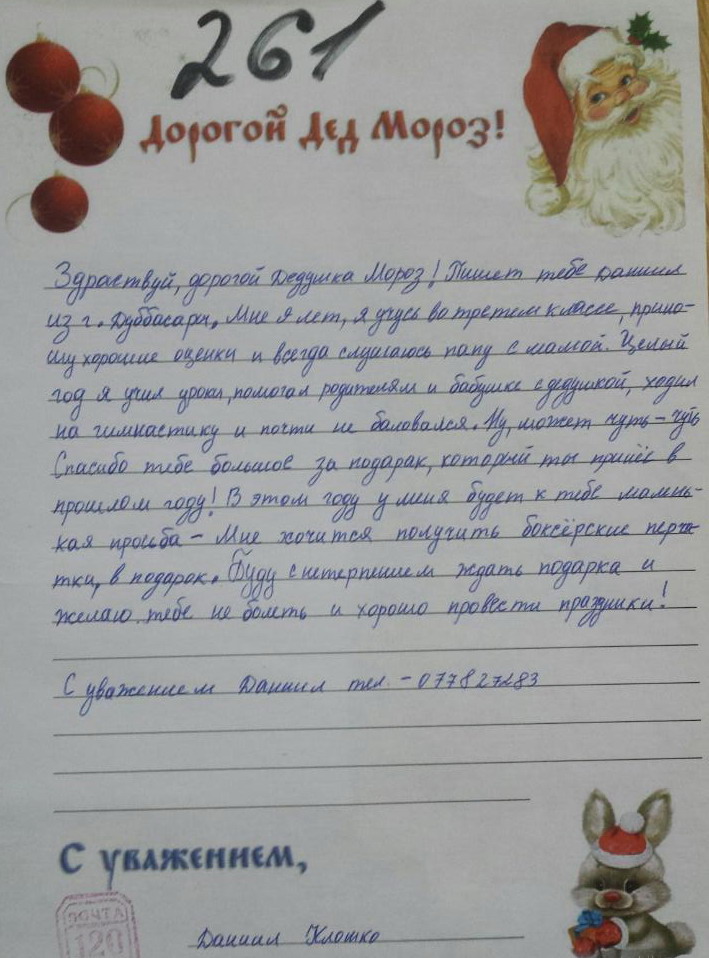 261
Дорогой Дед Мороз!
Здраствуй, дорогой Дедушка Мороз! Пишет тебе Даниил
из г. Дуббасари. Мне 9 лет, я учусь во третем классе, прино-
шу хорошие оценки и всегда слушаюсь папу с мамой. Целый
год я учил уроки, помогал родителям и бабушке с дедушкой, ходил
на гимнастику и почти не баловался. Ну, может чуть-чуть
Спасибо тебе большое за подарак, который ты принёс в
прошлом году! В этом году у миня будет к тебе малень-
кая произба - Мне хочится получить боксёрские перча-
тки, в подарок. Буду с нетерпением ждать подарка и
желаю тебе не болеть и хорошо провести праздники!
С уважением Даниил тел. - 077827283
С уважением,
ПОЧТА
120
Даниил Клошко